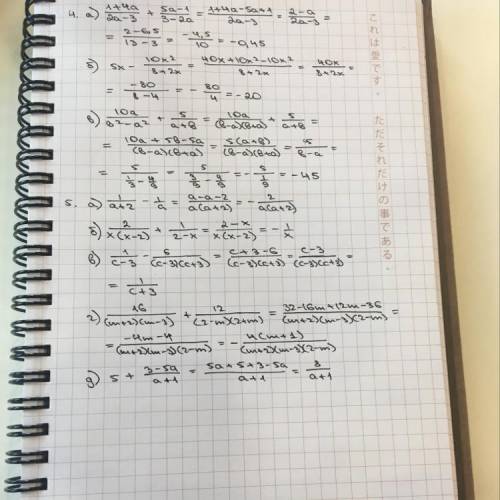 4. а) (1+4a)/(2a-3) + (5a-1)/(3-2a) = (1+4a-5a+1)/(2a-3) = (2-a)/(2a-3) =
= (2-6,5)/(13-3) = (-4,5)/10 = -0,45
б) 5x - 10x²/(8+2x) = (40x+10x²-10x²)/(8+2x) = 40x/(8+2x) =
= -80/(8-4) = - 80/4 = -20
в) 10a/(b²-a²) + 5/(a+b) = 10a/((b-a)(b+a)) + 5/(a+b) =
= (10a+5b-5a)/((b-a)(b+a)) = 5(a+b)/((b-a)(b+a)) = 5/(b-a) =
5. а) 1/(a+2) - 1/a = (a-a-2)/(a(a+2)) = - 2/(a(a+2))
б) 2/(x(x-2)) + 1/(2-x) = (2-x)/(x(x-2)) = - 1/x
в) 1/(c-3) - 6/((c-3)(c+3)) = (c+3-6)/((c-3)(c+3)) = (c-3)/((c-3)(c+3)) =
= 1/(c+3)
г) 16/((m+2)(m-3)) + 12/((2-m)(2+m)) = (32-16m+12m-36)/((m+2)(m-3)(2-m)) =
= (-4m-4)/((m+2)(m-3)(2-m)) = - 4(m+1)/((m+2)(m-3)(2-m))
д) 5 + (3-5a)/(a+1) = (5a+5+3-5a)/(a+1) = 8/(a+1)
これは愛です。 ただそれだけの事である。